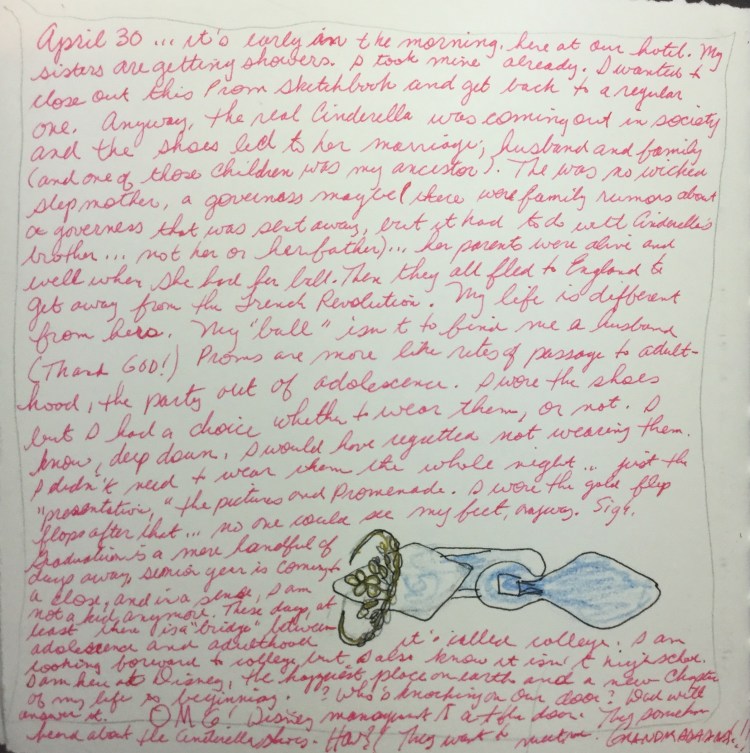 April 30 ... it's early in the morning, here at our hotel. My
sisters are getting showers. I took mine already. I wanted to
close out this Prom Sketchbook and get back to a regular
one. Anyway, the real Cinderella was coming out in society
and the shoes led to her marriage; husband and family
(and one of those children was my ancestor). The was no wicked
stepmother, a governess maybe (there were family rumors about
a governess that was sent away, but it had to do with Cinderella's
brother ... not her or her father)... her parents were alive and
well when she had her ball. Then they all fled to England to
get away from the French Revolution. My life is different
from hers. My "ball" isn't to find me a husband
(Thank GOD!) Proms are more like rites of passage to adult-
hood, the party out of adolescence. I wore the shoes
but I had a choice whether to wear them, or not. I
know, deep down, I would have regretted not wearing them.
I didn't need to wear them the whole night .. just the
"presentation," the pictures and Promenade. I wore the gold flip
flops after that ... no one could see my feet, anyway. Sigh.
Graduation is a mere handful of
days away, senior year is coming to
a close, and in a sense, I am
not a kid anymore. These days, at
least there is a "bridge" between
adolescence and adulthood it's called college. I am
looking forward to college, but I also know it isn't high school.
I am here at Disney, the happiest place on earth and a new chapter
of my life is beginning. ? Who's knocking on our door? Dad will
answer it. O.M.G! Disney management is at the door. They somehow
heard about the Cinderella shoes. They want to GRANDMA